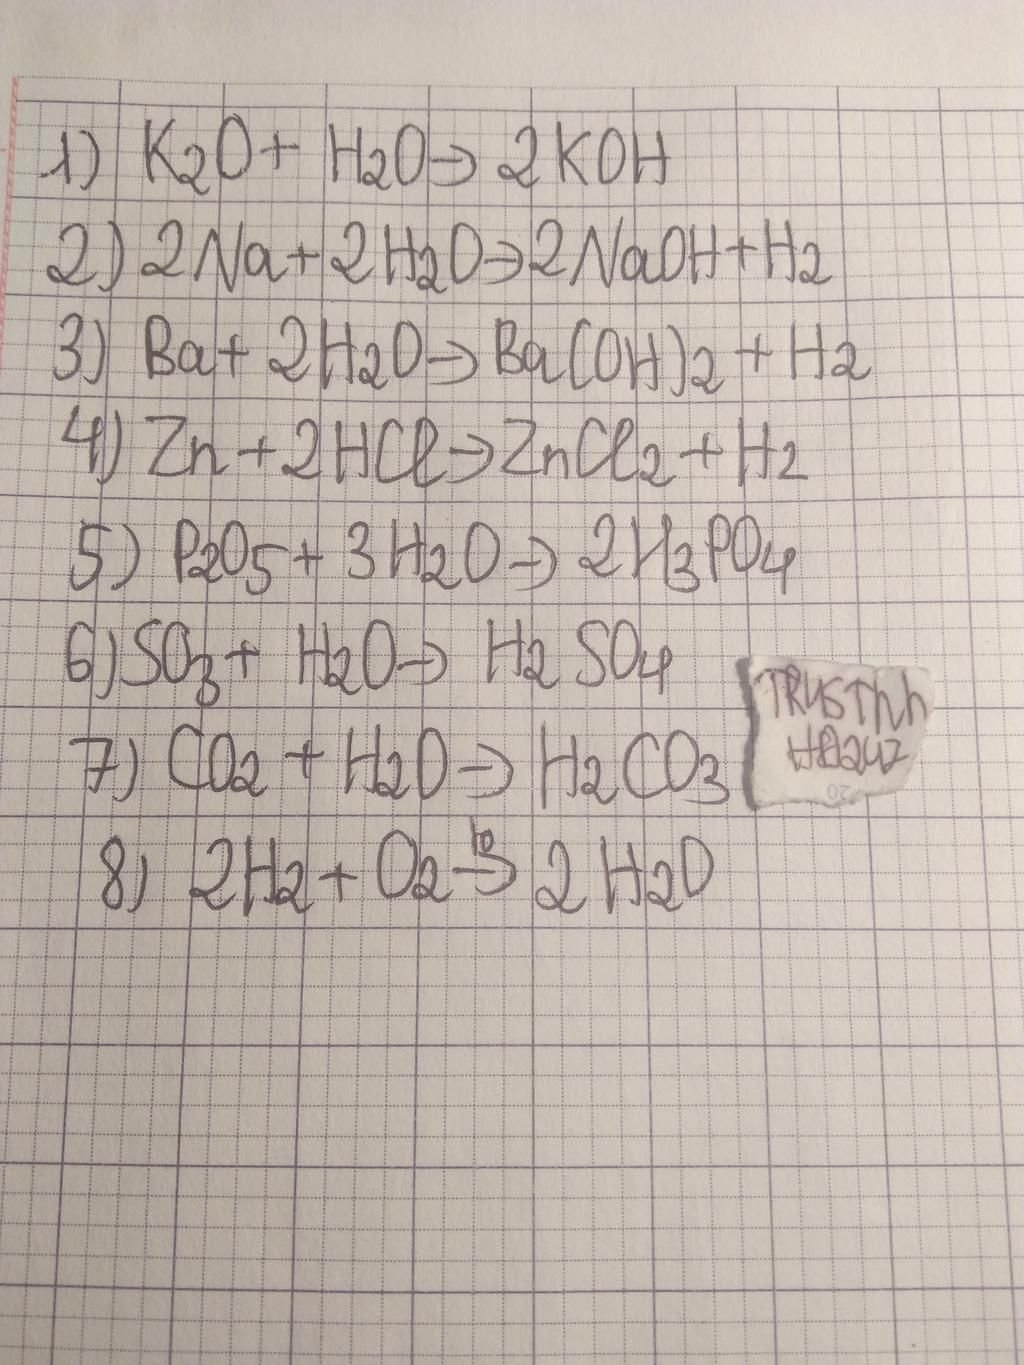 1) K2O + H2O → 2KOH
2) 2Na + 2H2O → 2NaOH + H2
3) Ba + 2H2O → Ba(OH)2 + H2
4) Zn + 2HCl → ZnCl2 + H2
5) P2O5 + 3H2O → 2H3PO4
6) SO3 + H2O → H2SO4
7) CO2 + H2O → H2CO3
8) 2H2 + O2 → 2H2O